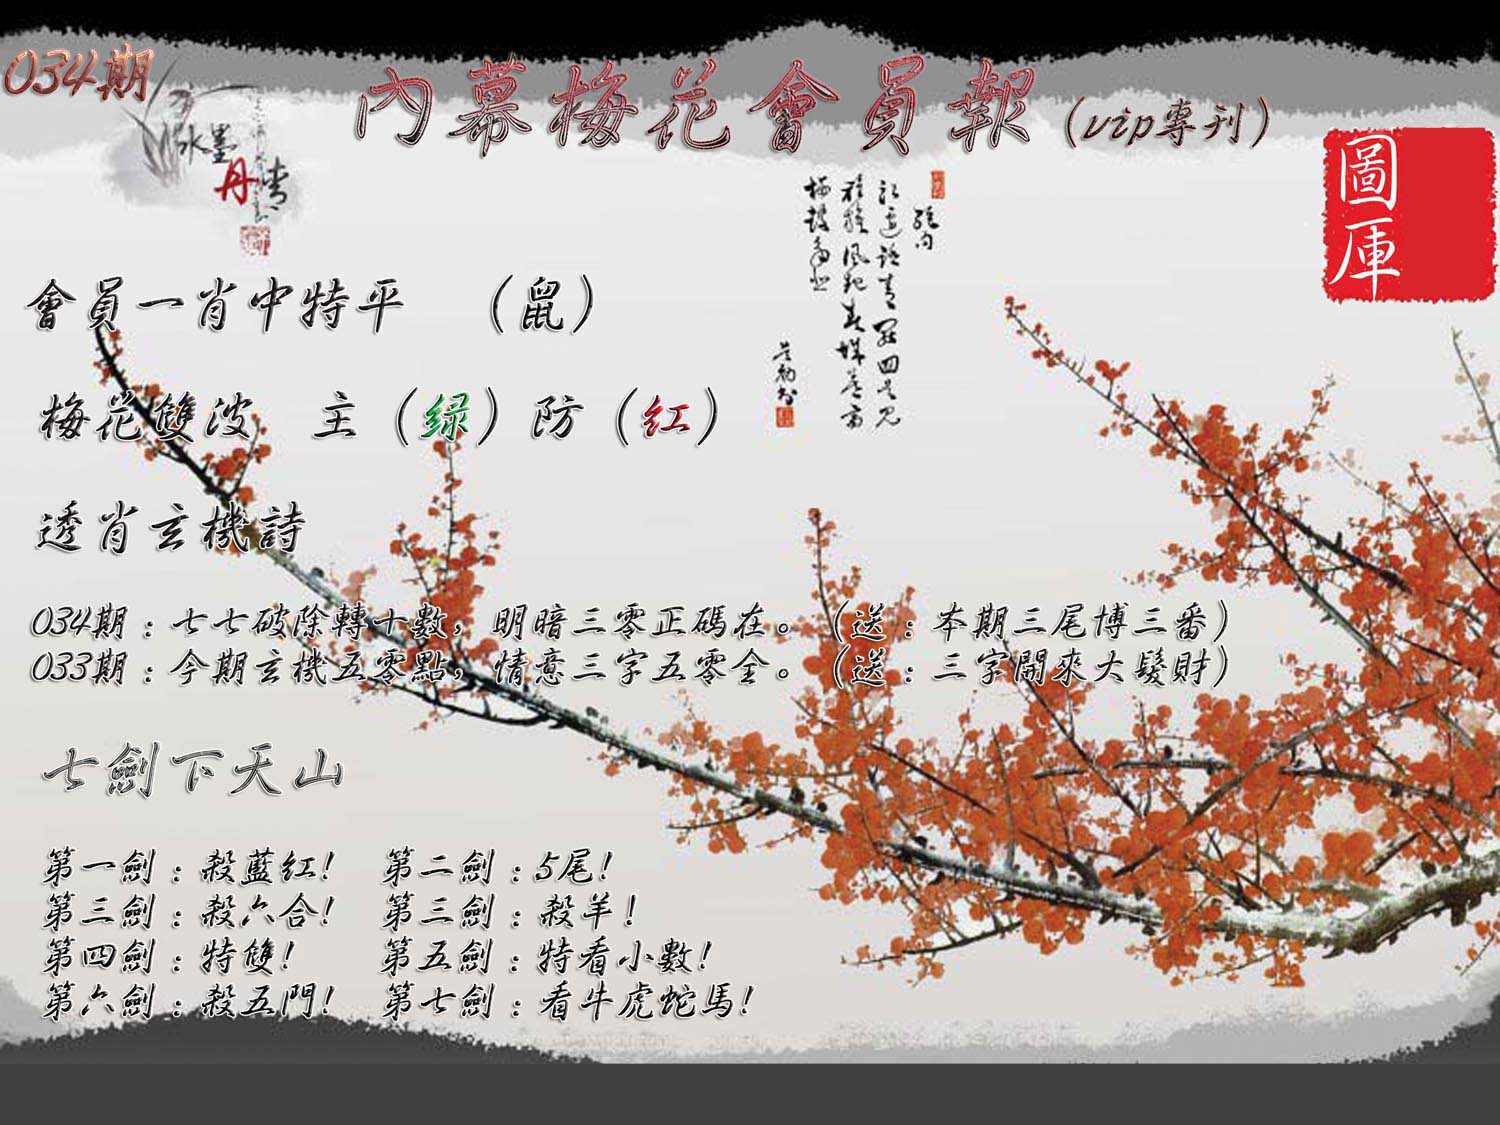 034期
內幕梅花會員報（vip專刊）
水墨
丹青
圖庫
會員一肖中特平　（鼠）
梅花雙波　主（绿）防（红）
透肖玄機詩
034期：七七破除轉十數，明暗三零正碼在。（送：本期三尾博三番）
033期：今期玄機五零點，情意三字五零全。（送：三字開來大髮財）
七劍下天山
第一劍：殺藍紅!　第二劍：5尾!
第三劍：殺六合!　第三劍：殺羊!
第四劍：特雙!　第五劍：特看小數!
第六劍：殺五門!　第七劍：看牛虎蛇馬!